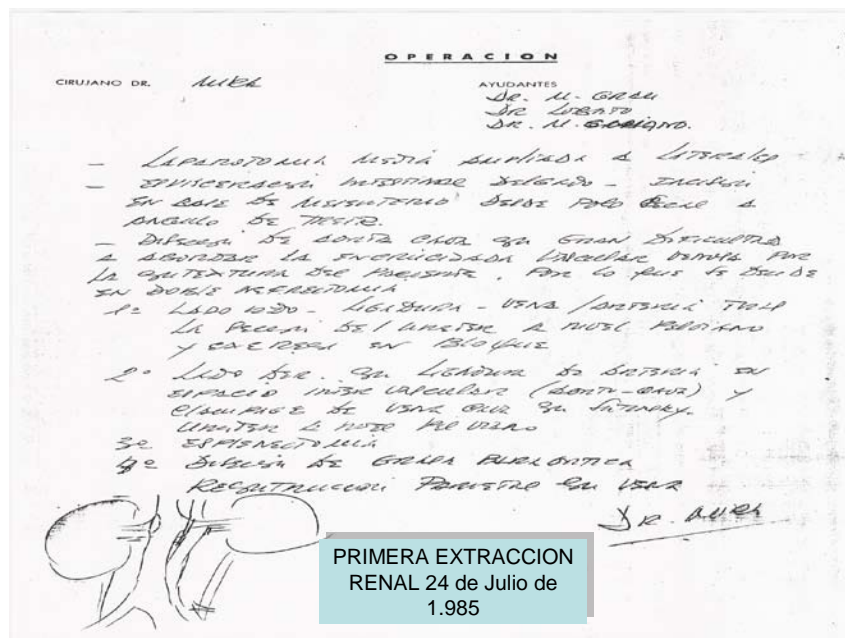 OPERACION
CIRUJANO DR. MIRA
AYUDANTES
DR. M. GRAU
DR LOBATO
DR. M.
- LAPAROTOMIA MEDIA AMPLIADA A LATERALES
- EVISCERACION INTESTINAL DELGADO - INCISION
EN BASE DE MESENTERIO DESDE POLO CECAL A
ANGULO DE TREIZ.
- DISECCION DE AORTA CAVA GRAN DIFICULTAD
A ABORDAR LA ENCRUCIJADA VASCULAR POR
LA DEL PACIENTE. POR LO QUE SE DECIDE
EN DOBLE NEFRECTOMIA
1º LADO IZDO - LIGADURA - VENA / ARTERIA TRAS
LA SECCION DEL URETER A NIVEL
Y EN BLOQUE
2º LADO DER. CON LIGADURA DE ARTERIA EN
ESPACIO INTER VASCULAR (AORTO-CAVA) Y
CLAMPAGE DE VENA CAVA CON SATINSKY.
URETER A NIVEL
3º ESPLENECTOMIA
4º DISECCION DE GRASA PERIAORTICA
VENA
DR. MIRA
PRIMERA EXTRACCION
RENAL 24 de Julio de
1.985